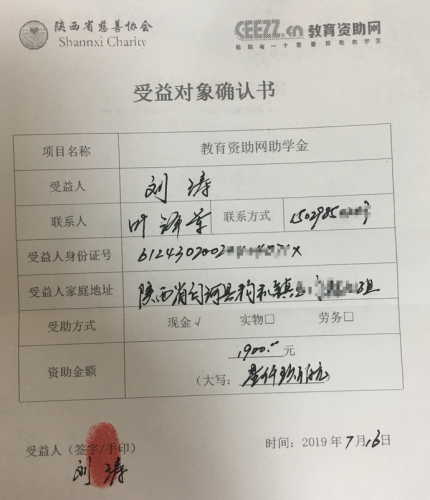 陕西省慈善协会
Shannxi Charity
CEEZZ.cn 教育资助网
帮助每一个需要帮助的学生
受益对象确认书
项目名称 教育资助网助学金
受益人 刘涛
联系人 叶 联系方式 1502985
受益人身份证号 612430200 X
受益人家庭地址 陕西省旬河县 镇 组
受助方式 现金√ 实物□ 劳务□
资助金额 1900.00 元
(大写：壹仟玖佰元
受益人（签字/手印）
刘涛
时间：2019年7月16日